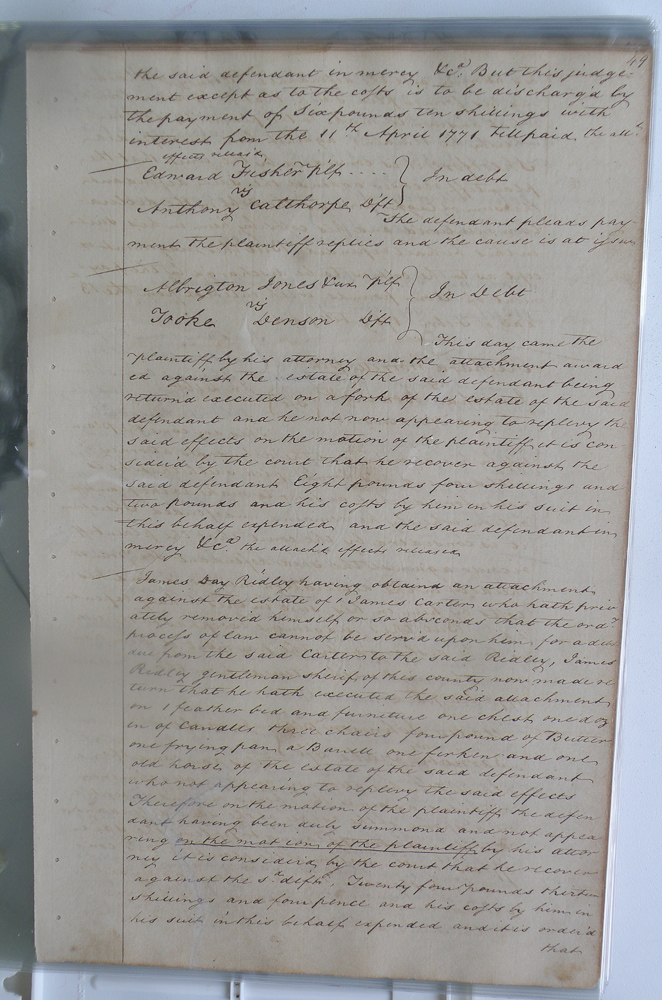 49
the said defendant in mercy &c.a But this judge-
ment except as to the costs is to be discharg'd by
the payment of Six pounds ten shillings with
interest from the 11th April 1771 till paid the att.d
effects releas'd
Edward Fisher plf .... } In debt
vs
Anthony Calthorpe Dft
The defendant pleads pay-
ment the plaintiff replies and the cause is at issue
Albrigton Jones & ux plf } In Debt
vs
Tooke Denson Dft
This day came the
plaintiff by his attorney and the attachment award
ed against the estate of the said defendant being
return'd executed on a fork of the estate of the said
defendant and he not now appearing to replevy the
said effects on the motion of the plaintiff it is con-
sider'd by the court that he recover against the
said defendant Eight pounds four shillings and
two pounds and his costs by him in his suit in
this behalf expended and the said defendant in
mercy &c.a the attach'd effects released
James Day Ridley having obtaind an attachment
against the estate of James Carter who hath priv
ately remov'd himself or so absconds that the ord.y
process of law cannot be serv'd upon him for a debt
due from the said Carter to the said Ridley, James
Ridley gentleman sherif of this county now made re
turn that he hath executed the said attachment
on 1 feather bed and furniture one chest one doz
en of Candles three chairs four pound of Butter
one frying pan a Barrell one firken and one
old horse of the estate of the said defendant
who not appearing to replevy the said effects
Therefore on the motion of the plaintiff the defen
dant having been duly summond and not appea
ring on the motion of the plaintiff by his attor
ney it is consider'd by the court that he recover
against the s.d deft. Twenty four pounds thirteen
shillings and four pence and his costs by him in
his suit in this behalf expended and it is order'd
that